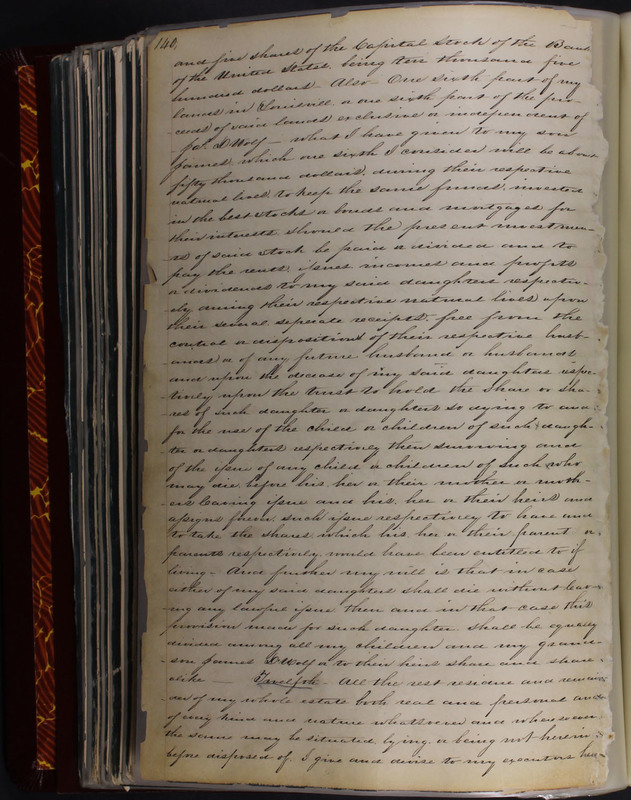 140,
and five shares of the Capital Stock of the Bank
of the United States, being ten thousand five
hundred dollars Also One sixth part of my
lands in Louisvill, or one sixth part of the pro-
ceeds of said lands exclusive or independent of
DWolf - what I have given to my son
James, which one sixth I consider will be about
fifty thousand dollars, during their respective
natural lives, to keep the same funds, invested
in the best stocks or bonds and mortgages for
their interests should the present investmen-
ts of said stock be paid or divided and to
pay the rents, issues incomes and profits
or dividends to my said daughters respectiv-
ely during their respective natural lives upon
their several seperate receipts, free from the
control or dispositions of their respective husb-
ands, or of any future husband or husbands
and upon the decease of my said daughters respec-
tively upon the trust to hold the share or sha-
res of such daughter or daughters so dying to and
for the use of the child or children of such daugh-
ter or daughters respectively then surviving and
of the issue of any child or children of such who
may die before his, her or their mother or moth-
ers leaving issue and his, her or their heirs and
assigns forever, such issue respectively to have and
to take the shares which his, her or their parent or
parents respectively would have been entitled to if
living - And further my will is that in case
either of my said daughters shall die without leav-
ing any lawful issue then and in that case this
provision made for such daughter shall be equally
divided among all my children and my grand-
son James DWolf or to their heirs share and share
alike — Twelfth - All the rest residue and remain-
der of my whole estate both real and personal and
of any kind and nature whatsoever and wheresoever
the same may be situated, lying, or being not herein
before disposed of, I give and devise to my executors here-